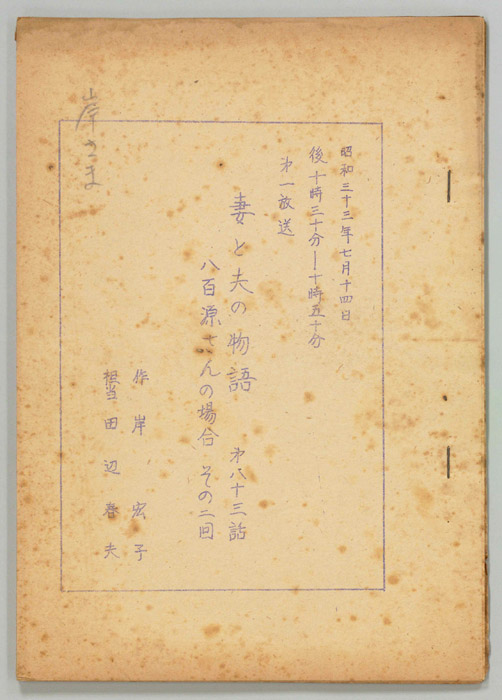 昭和三十三年七月十四日
後十時三十分ー十時五十分
才一放送
妻と夫の物語　才八十三話
八百源さんの場合　その二回
作　岸　宏子
担当　田辺春夫
岸さま